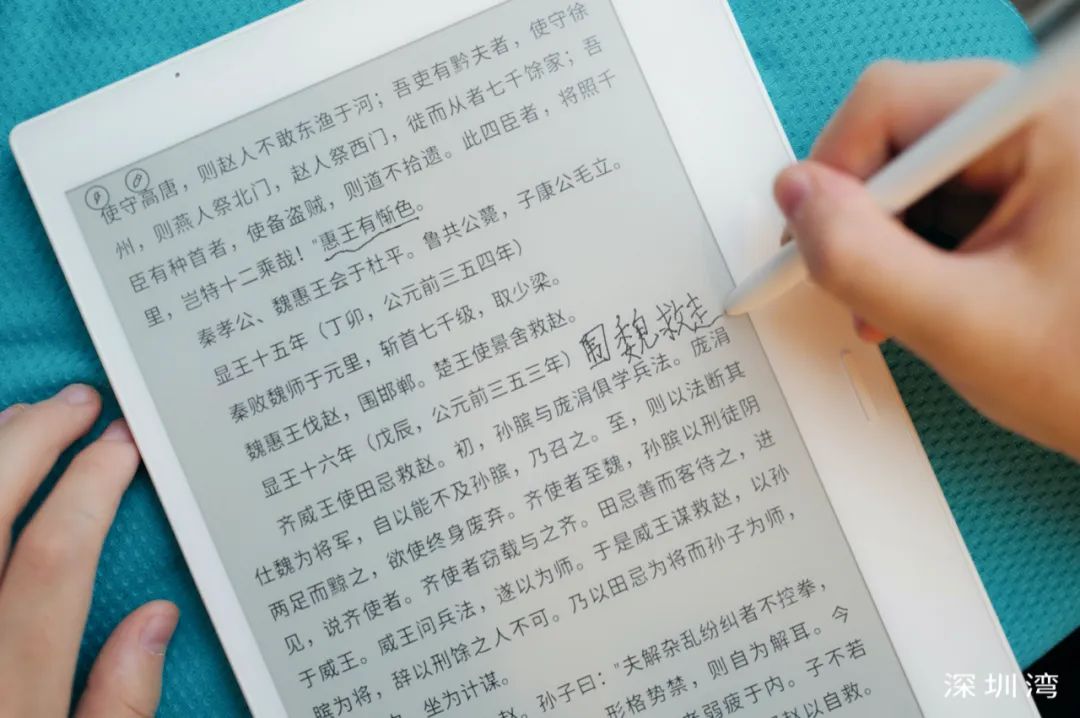 使守高唐，则赵人不敢东渔于河；吾吏有黔夫者，使守徐
州，则燕人祭北门，赵人祭西门，徙而从者七千馀家；吾
臣有种首者，使备盗贼，则道不拾遗。此四臣者，将照千
里，岂特十二乘哉！"惠王有惭色。
秦孝公、魏惠王会于杜平。鲁共公薨，子康公毛立。
显王十五年（丁卯，公元前三五四年）
秦败魏师于元里，斩首七千级，取少梁。
魏惠王伐赵，围邯郸。楚王使景舍救赵。
显王十六年（戊辰，公元前三五三年） 围魏救赵
齐威王使田忌救赵。初，孙膑与庞涓俱学兵法。庞涓
仕魏为将军，自以能不及孙膑，乃召之。至，则以法断其
两足而黥之，欲使终身废弃。齐使者至魏，孙膑以刑徒阴
见，说齐使者。齐使者窃载与之齐。田忌善而客待之，进
于威王。威王问兵法，遂以为师。于是威王谋救赵，以孙
膑为将，辞以刑馀之人不可。乃以田忌为将而孙子为师，
坐为计谋。
赵。孙子曰："夫解杂乱纷纠者不控拳，
形格势禁，则自为解耳。今
老弱疲于内。子不若
赵以自救。
深圳湾